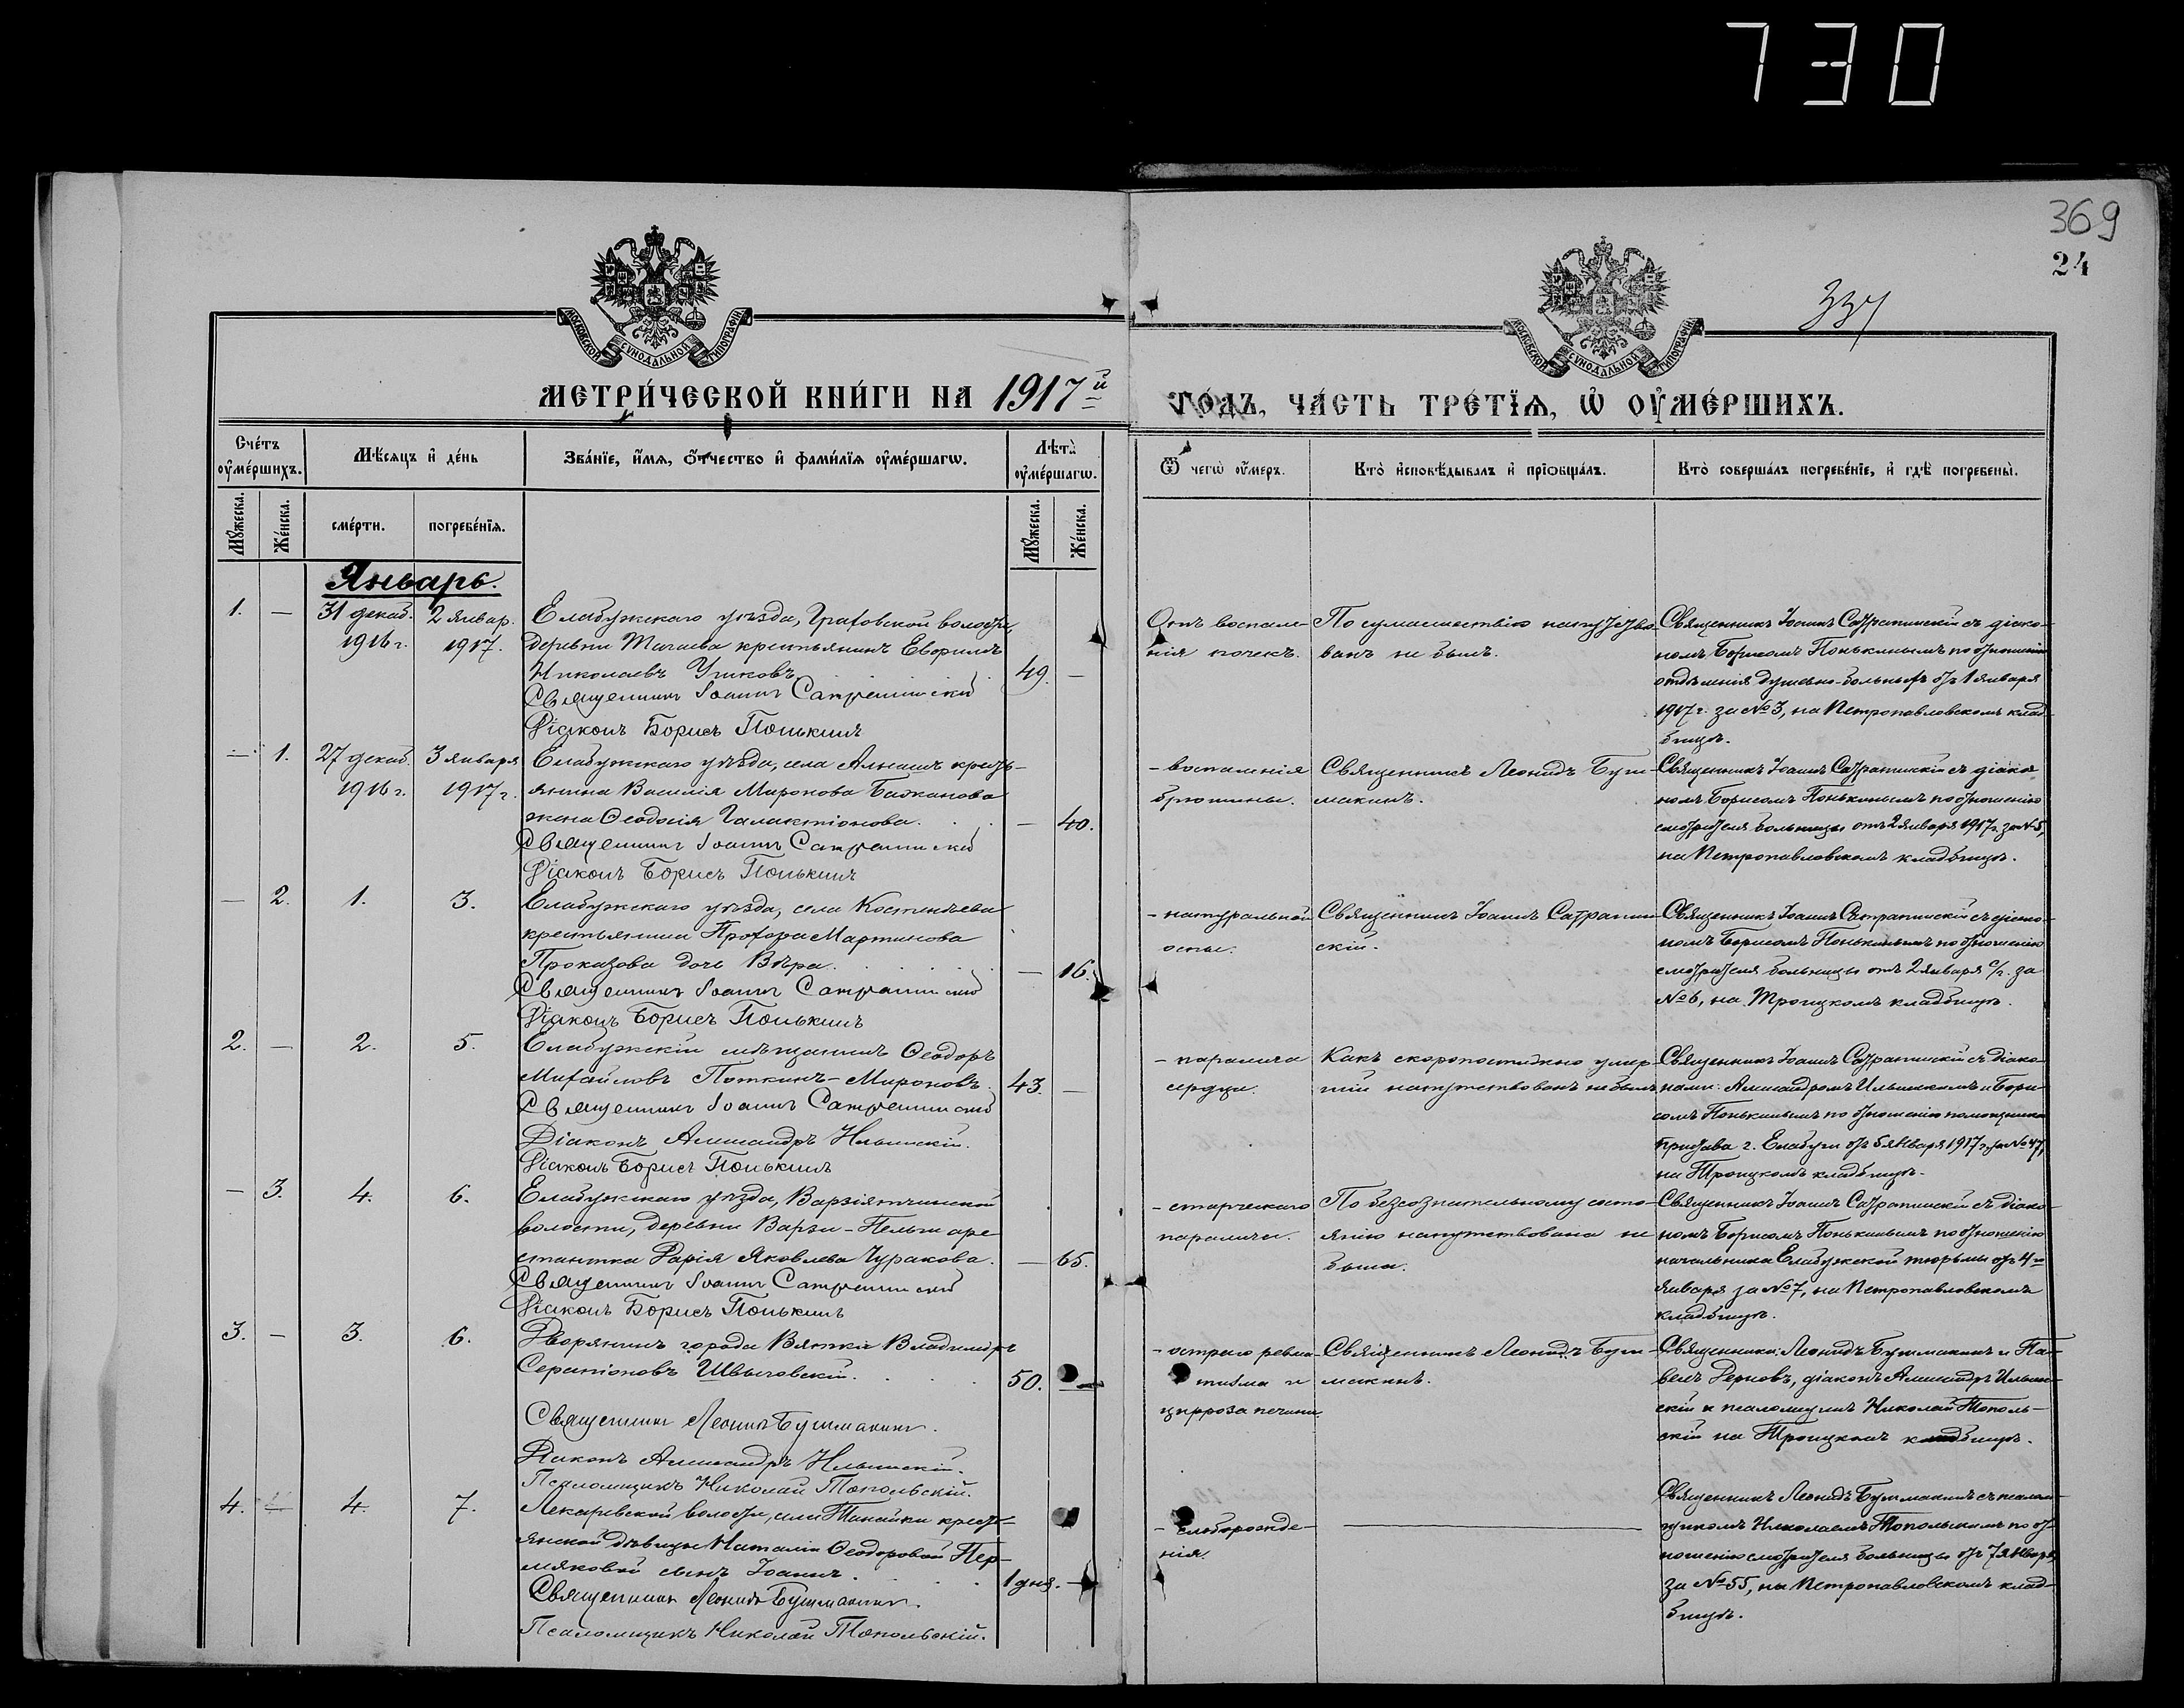 730
369
24
337
МОСКОВСКОЙ СѴНОДАЛЬНОЙ ТИПОГРАФІИ
МОСКОВСКОЙ СѴНОДАЛЬНОЙ ТИПОГРАФІИ
МЕТРИ́ЧЕСКОЙ КНИ́ГИ НА 1917й
ГО́ДЪ, ЧА́СТЬ ТРЕ́ТІѦ, Ѡ ОУ҆МЕ́РШИХЪ.
Сче́тъ оу҆ме́ршихъ.
Мѣ́сѧцъ и҆ де́нь
Зва́нїе, и҆́мѧ, ѻ҆́тчество и҆ фами́лїѧ оу҆ме́ршагѡ.
Лѣ́та оу҆ме́ршагѡ.
Ѿ чегѡ̀ оу҆́меръ.
Кто̀ и҆сповѣ́дывалъ и҆ прїѡбща́лъ.
Кто̀ соверша́лъ погребе́нїе, и҆ гдѣ̀ погребены̀.
Мꙋ́жеска.
Же́нска.
сме́рти.
погребе́нїѧ.
Мꙋ́жеска.
Же́нска.
Январь.
1. — 31 декаб. 1916 г. 2 январ. 1917.
Елабужскаго уѣзда, Граховской волости,
деревни Тагаева крестьянинъ Евфимъ
Николаевъ Ушковъ. 49. —
Священникъ Іоаннъ Сатрапинскій
Діаконъ Борисъ Понькинъ
Отъ воспале-
нія почекъ.
По сумашествію напутство-
ванъ не былъ.
Священникъ Іоаннъ Сатрапинскій съ діако-
номъ Борисомъ Понькинымъ по отношенію
отдѣленія душевно-больныхъ отъ 1 января
1917 г. за № 3, на Петропавловскомъ клад-
бищѣ.
— 1. 27 декаб. 1916 г. 3 января 1917 г.
Елабужскаго уѣзда, села Альнашъ кресть-
янина Василія Миронова Бажанова
жена Ѳеодосія Галактіонова. — 40.
Священникъ Іоаннъ Сатрапинскій
Діаконъ Борисъ Понькинъ
- воспаленія
брюшины.
Священникъ Леонидъ Буш-
макинъ.
Священникъ Іоаннъ Сатрапинскій съ діако-
номъ Борисомъ Понькинымъ по отношенію
смотрителя больницы отъ 2 января 1917 г. за № 5,
на Петропавловскомъ кладбищѣ.
— 2. 1. 3.
Елабужскаго уѣзда, села Костенѣева
крестьянина Прохора Мартинова
Проказова дочь Вѣра. — 16.
Священникъ Іоаннъ Сатрапинскій
Діаконъ Борисъ Понькинъ
- натуральной
оспы.
Священникъ Іоаннъ Сатрапин-
скій.
Священникъ Іоаннъ Сатрапинскій съ діако-
номъ Борисомъ Понькинымъ по отношенію
смотрителя больницы отъ 2 января с/г. за
№ 6, на Троицкомъ кладбищѣ.
2. — 2. 5.
Елабужскій мѣщанинъ Ѳеодоръ
Михайловъ Поткинъ-Мироновъ. 43. —
Священникъ Іоаннъ Сатрапинскій
Діаконъ Александръ Ильинскій.
Діаконъ Борисъ Понькинъ
- паралича
сердца.
Какъ скоропостижно умер-
шій напутствованъ не былъ
Священникъ Іоаннъ Сатрапинскій съ діако-
нами: Александромъ Ильинскимъ и Бори-
сомъ Понькинымъ по отношенію помощника
пристава г. Елабуги отъ 5 января 1917 г. за № 47,
на Троицкомъ кладбищѣ.
— 3. 4. 6.
Елабужскаго уѣзда, Варзіятчинской
волости, деревни Варзи-Пельги аре-
стантка Дарія Яковлева Чуракова. — 65.
Священникъ Іоаннъ Сатрапинскій
Діаконъ Борисъ Понькинъ
- старческаго
паралича.
По безсознательному состо-
янію напутствована не
была.
Священникъ Іоаннъ Сатрапинскій съ діако-
номъ Борисомъ Понькинымъ по отношенію
начальника Елабужской тюрьмы отъ 4-го
января за № 7, на Петропавловскомъ
кладбищѣ.
3. — 3. 6.
Дворянинъ города Вятки Владимиръ
Серапіоновъ Швыговскій. 50. —
Священникъ Леонидъ Бушмакинъ.
Діаконъ Александръ Ильинскій.
Псаломщикъ Николай Топольскій.
- остраго ревма-
тизма и
цирроза печени.
Священникъ Леонидъ Буш-
макинъ.
Священники: Леонидъ Бушмакинъ и Па-
велъ Дерновъ, діаконъ Александръ Ильин-
скій и псаломщикъ Николай Тополь-
скій на Троицкомъ кладбищѣ.
4. — 4. 7.
Лекаревской волости, села Танайки кресть-
янской дѣвицы Наталіи Ѳеодоровой Пер-
мяковой сынъ Іоаннъ. 1 дня. —
Священникъ Леонидъ Бушмакинъ.
Псаломщикъ Николай Топольскій.
- слаборожде-
нія.
Священникъ Леонидъ Бушмакинъ съ псалом-
щикомъ Николаемъ Топольскимъ по от-
ношенію смотрителя больницы отъ 7 января
за № 55, на Петропавловскомъ клад-
бищѣ.